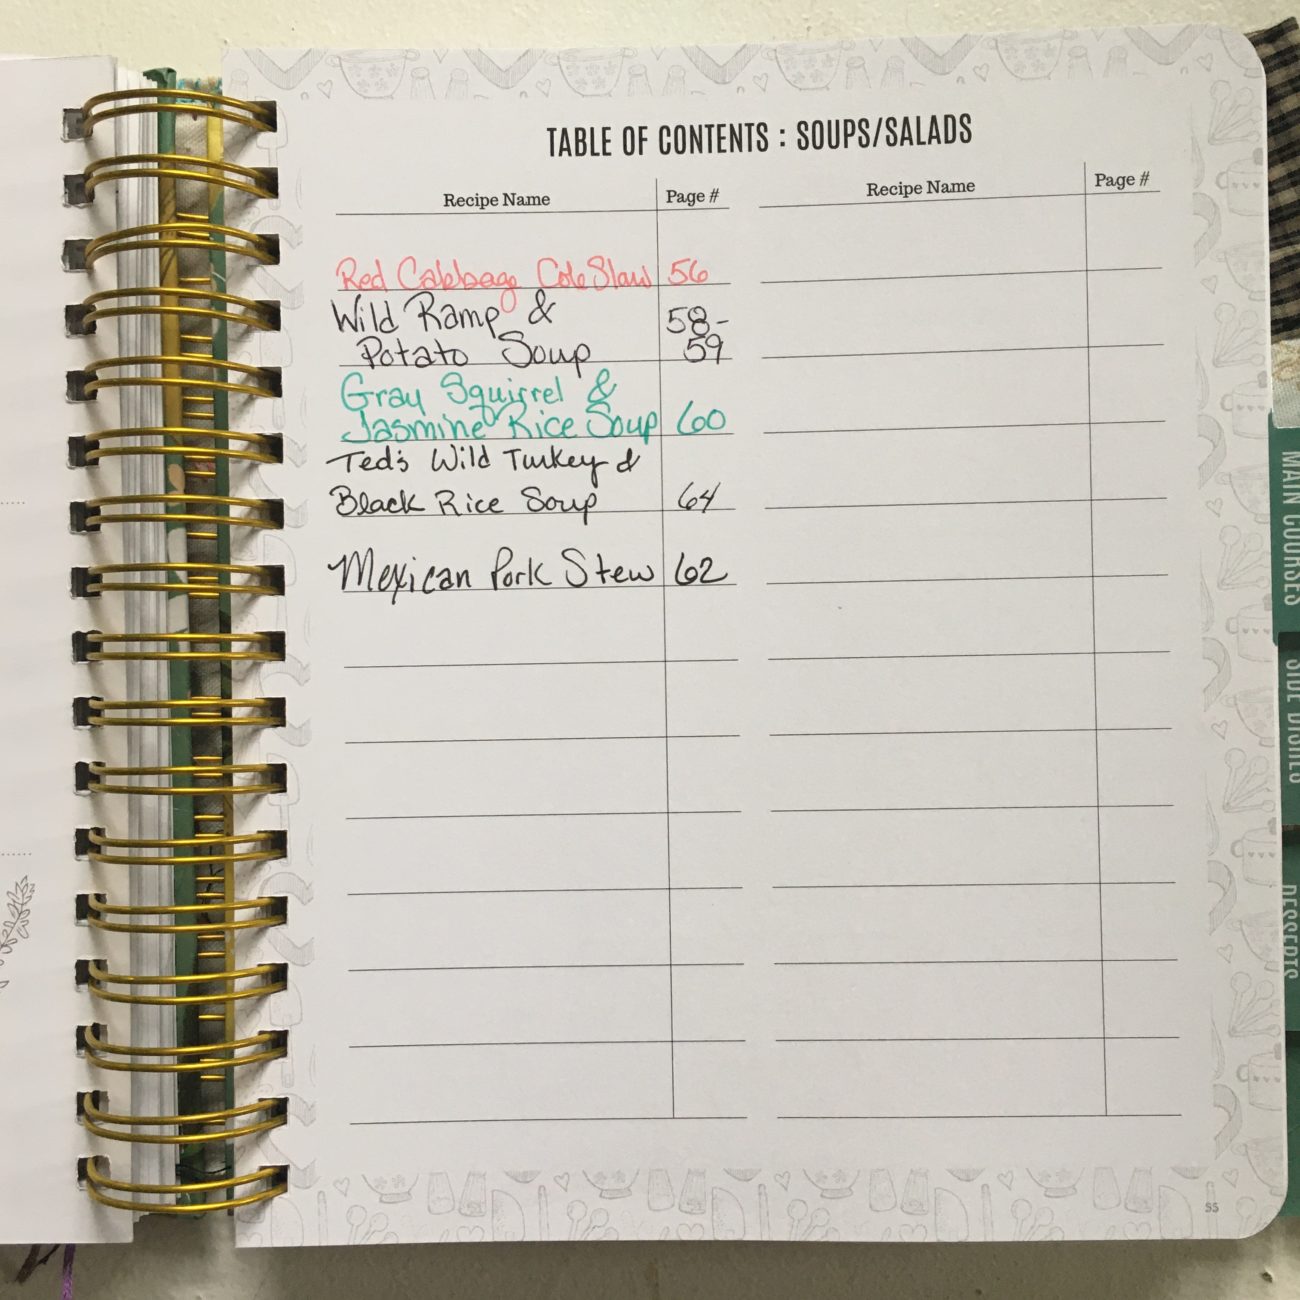 TABLE OF CONTENTS : SOUPS/SALADS
Recipe Name Page #
Red Cabbage Cole Slaw 56
Wild Ramp &
Potato Soup 58-59
Gray Squirrel &
Jasmine Rice Soup 60
Ted's Wild Turkey &
Black Rice Soup 64
Mexican Pork Stew 62
Recipe Name Page #
55
MAIN COURSES
SIDE DISHES
DESSERTS